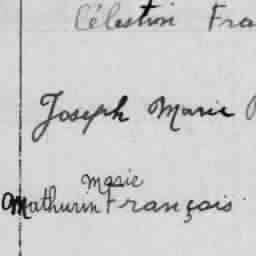 Célestin Fra
Joseph Marie
Marie
Mathurin François